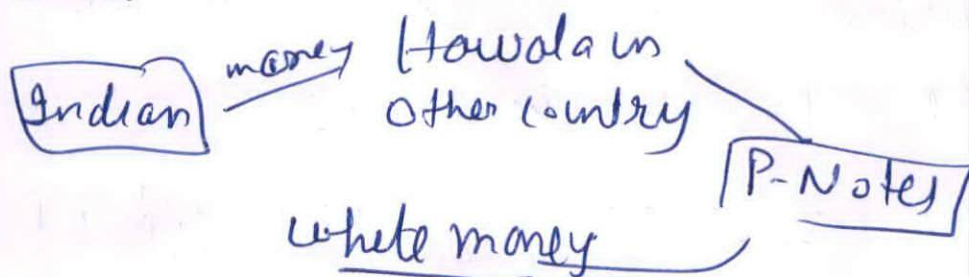 Indian money Hawala in
other country
P-Notes
white money